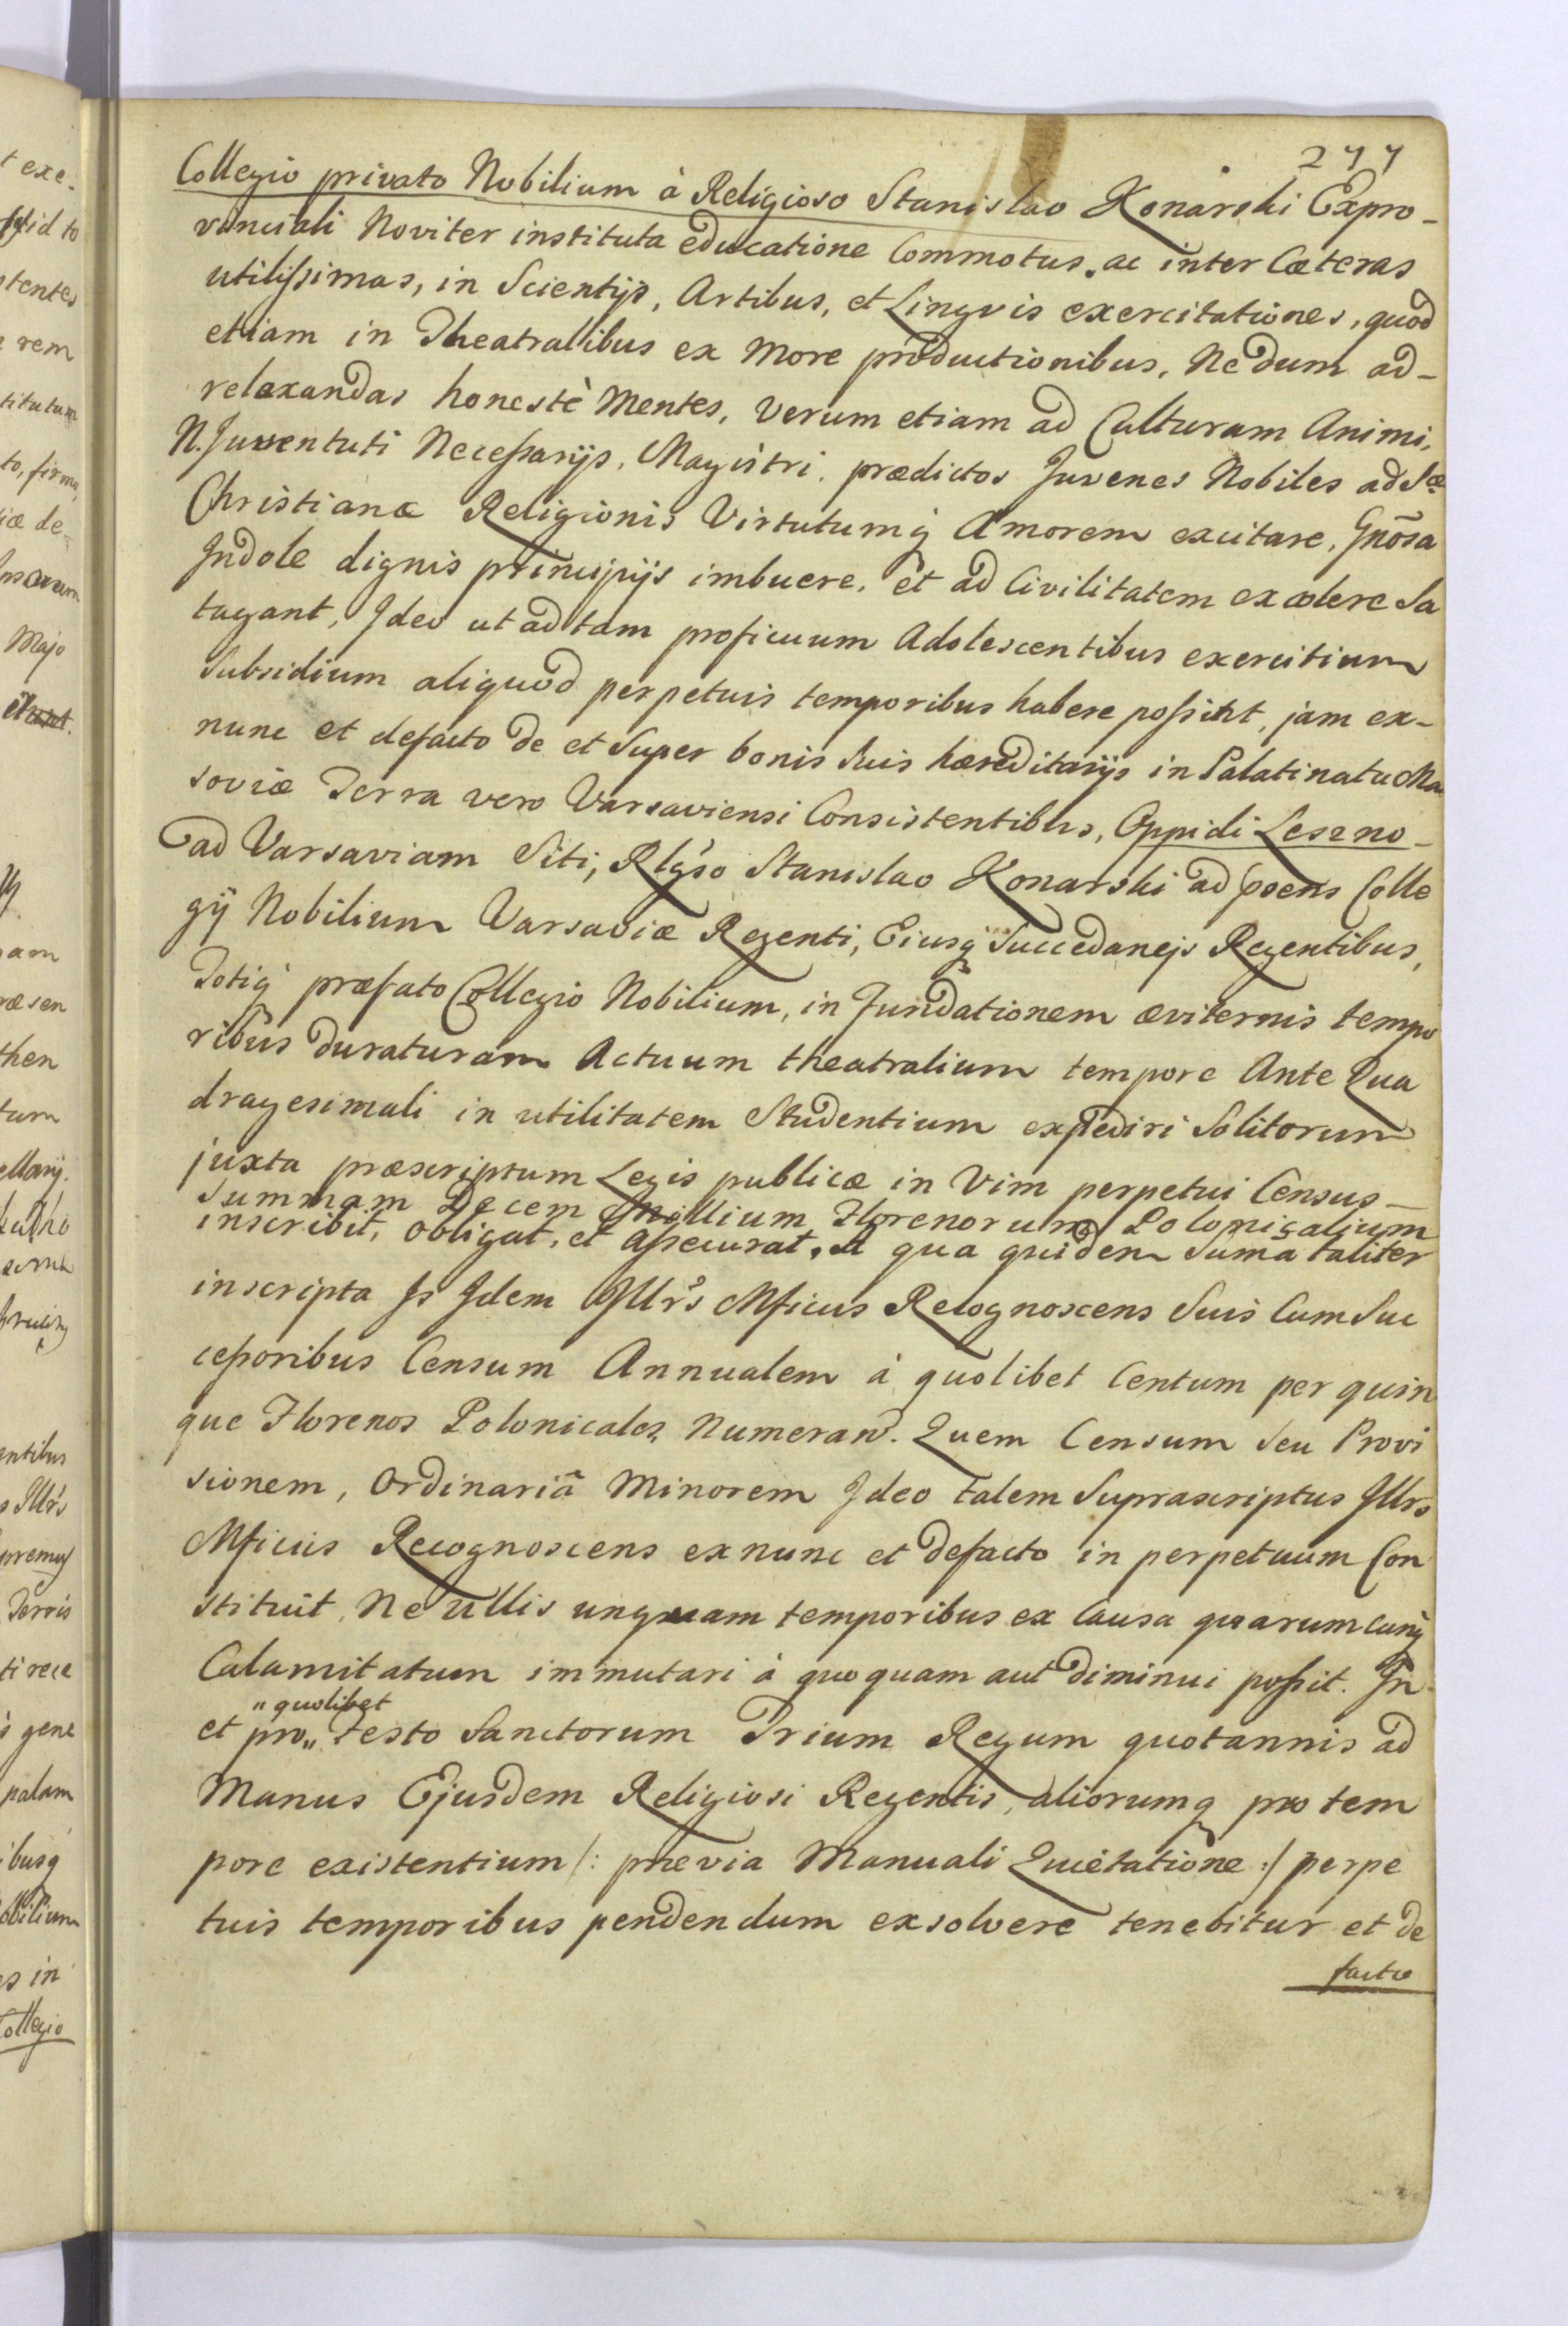 277
Collegio privato Nobilium à Religioso Stanislao Konarski Expro-
vinciali Noviter instituta educatione Commotus, ac inter Cœteras
utilissimas, in Scientijs, Artibus, et Lingvis exercitationes, quod
etiam in Theatralibus ex More productionibus, Nedum ad-
relaxandas honestè Mentes, verum etiam ad Culturam Animi,
N. Juventuti Necessarijs, Magistri, prædictos Juvenes Nobiles ad Sæ
Christianæ Religionis Virtutumq Amorem excitare, Gnõsa
Indole dignis principijs imbuere, et ad Civilitatem excolere Sa
tagant, Ideo ut ad tam proficuum Adolescentibus exercitium
Subsidium aliquod perpetuis temporibus habere possint, jam ex-
nunc et defacto de et Super bonis Suis hæreditarijs in Palatinatu Ma
soviæ Terra vero Varsaviensi Consistentibus, Oppidi Leszno-
ad Varsaviam Siti, Rlgso Stanislao Konarski ad pœns Colle
gij Nobilium Varsaviæ Regenti, Eiusq Succedanejs Regentibus,
Totiq præfato Collegio Nobilium, in Fundationem æviternis tempo
ribus duraturam Actuum theatralium tempore Ante Qua
dragesimali in utilitatem Studentium expediri Solitorum
juxta præscriptum Legis publicæ in Vim perpetui Census-
Summam Decem Millium Florenorum Polonicalium
inscribit, obligat, et assecurat, A qua quidem Suma taliter
inscripta Is Idem Illrs Mficus Recognoscens Suis Cum Suc
cessoribus Censum Annualem à quolibet Centum per quin
que Florenos Polonicales Numeran. Quem Censum Seu Provi
sionem, Ordinariã Minorem Ideo talem Suprascriptus Illrs
Mficus Recognoscens exnunc et defacto in perpetuum Con
stituit, Ne ullis unquam temporibus ex Causa quarumcunq
Calamitatum immutari à quoquam aut diminui possit. In
"quolibet
et pro" Festo Sanctorum Trium Regum quotannis ad
Manus Ejusdem Religiosi Regentis, aliorumq pro tem
pore existentium /: prævia Manuali Quietatione :/ perpe
tuis temporibus pendendum exsolvere tenebitur et de
facto